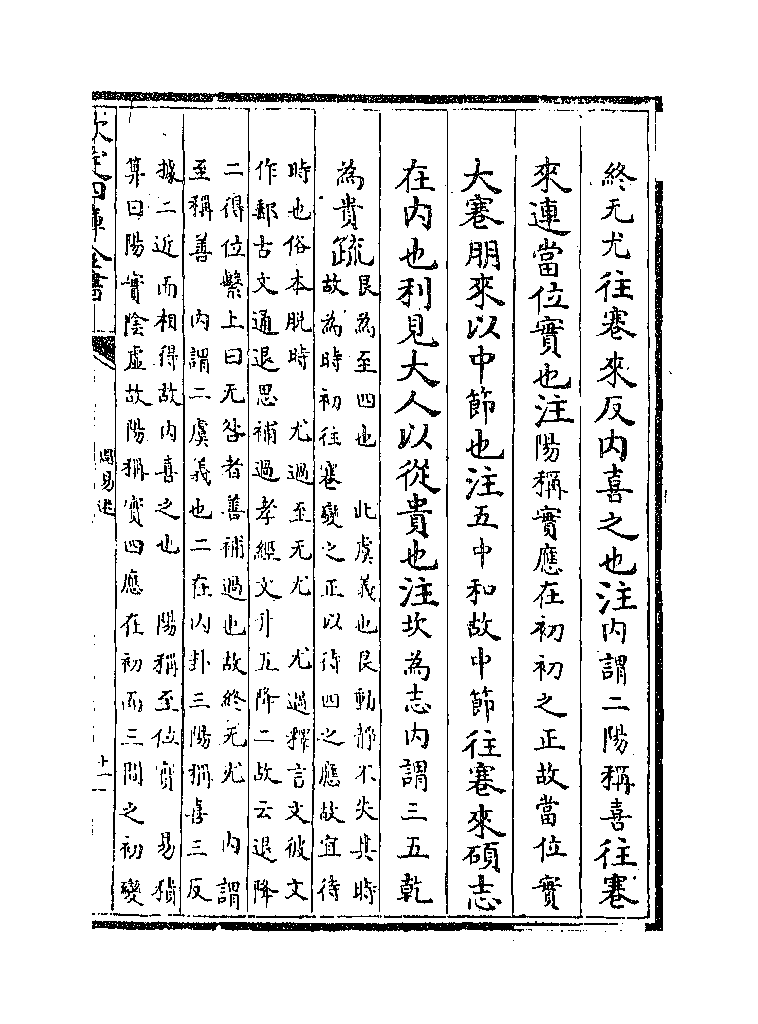 終无尤往蹇來反内喜之也注内謂二陽稱喜往蹇
來連當位實也注陽稱實應在初初之正故當位實
大蹇朋來以中節也注五中和故中節往蹇來碩志
在内也利見大人以從貴也注坎為志内謂三五乾
為貴疏艮為至四也　此虞義也艮動靜不失其時
故為時初往蹇變之正以待四之應故宜待
時也俗本脱時　尤過至无尤　尤過釋言文彼文
作郵古文通退思補過孝經文升五降二故云退降
二得位繫上曰无咎者善補過也故終无尤　内謂
至稱善　内謂二虞義也二在内卦三陽稱喜三反
據二近而相得故内喜之也　陽稱至位實　易積
算曰陽實陰虚故陽稱實四應在初而三間之初變
欽定四庫全書
周易述
十一